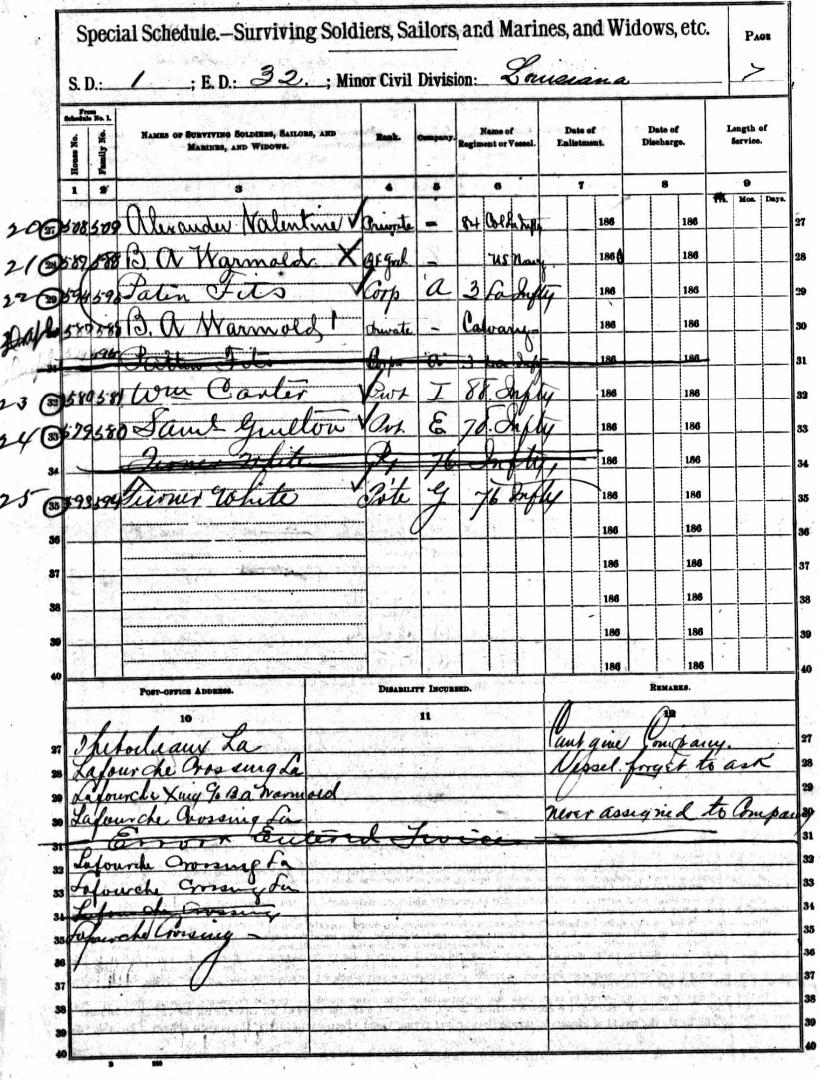 Special Schedule.—Surviving Soldiers, Sailors, and Marines, and Widows, etc.
PAGE
7
S. D.: 1 ; E. D.: 32. ; Minor Civil Division: Louisiana
From Schedule No. 1.
House No. Family No. NAMES OF SURVIVING SOLDIERS, SAILORS, AND MARINES, AND WIDOWS. Rank. Company. Name of Regiment or Vessel. Date of Enlistment. Date of Discharge. Length of Service.
1 2 3 4 5 6 7 8 9
Mos. Days.
20 27 508 509 Alexander Valentine Private - 84 Col La Infty 186 186 27
21 28 587 588 B A Warmold X - US Navy 186 186 28
22 29 594 595 Patin Fits Corp A 3 La Infty 186 186 29
587 588 B. A Warmold Private - Calvary 186 186 30
31 Fits A 3 Infty 186 186 31
23 32 580 581 Wm Carter Pvt I 88 Infty 186 186 32
24 33 579 580 Saml Guilton Pvt E 78. Infty 186 186 33
34 Turner White 76 Infty, 186 186 34
25 35 593 594 Turner White Pvte G 76 Infty 186 186 35
36 186 186 36
37 186 186 37
38 186 186 38
39 186 186 39
40 186 186 40
POST-OFFICE ADDRESS. DISABILITY INCURRED. REMARKS.
10 11 12
27 Thibodeaux La Cant give Company. 27
28 Lafourche Crossing La Vessel forget to ask 28
29 Lafourche Xing % B A Warmold 29
30 Lafourche Crossing La never assigned to Company 30
31 Error Entered Twice 31
32 Lafourche Crossing La 32
33 Lafourche Crossing La 33
34 Lafourche Crossing 34
35 Lafourche Crossing - 35
36 36
37 37
38 38
39 39
40 40